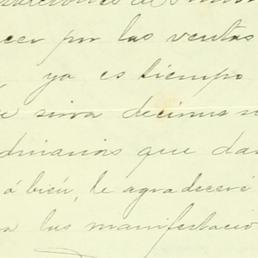 cer por las ventas
ya es tiempo
sirva decirnos
que dar
á bien, le agradeceré
las manifestacio